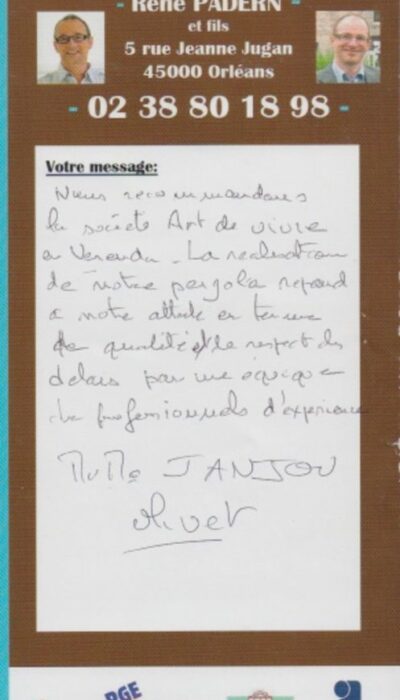 - René PADERN -
et fils
5 rue Jeanne Jugan
45000 Orléans
- 02 38 80 18 98 -
Votre message:
Nous recommandons
la société Art de vivre
en Veranda. La realisation
de notre pergola repond
a notre attente en terme
de qualité et le respect des
delais par une équipe
de professionnels d'experience
Mr Mme JANJOU
Olivet
RGE